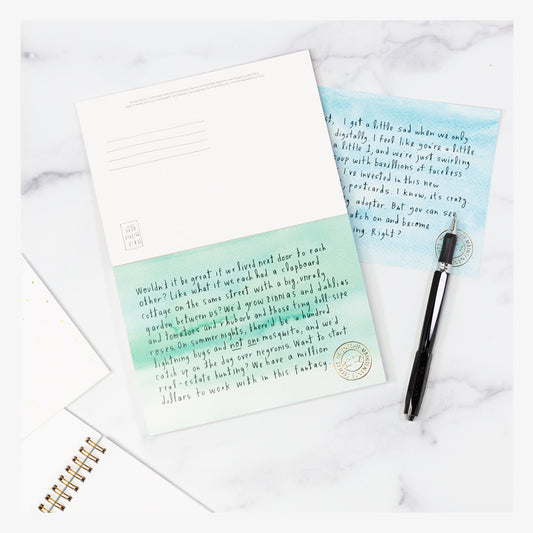 Wouldn't it be great if we lived next door to each
other? Like what if we each had a clapboard
cottage on the same street with a big, unruly
garden between us? We'd grow zinnias and dahlias
and tomatoes and rhubarb and those tiny doll-size
roses. On summer nights, there'd be a hundred
lightning bugs and not one mosquito, and we'd
catch up on the day over negronis. Want to start
real-estate hunting? We have a million
dollars to work with in this fantasy.
I get a little sad when we only
digitally. I feel like you're a little
a little 1, and we're just swirling
with bazillions of faceless
I've invested in this new
postcards. I know, it's crazy.
adopter. But you can see
catch on and become
Right?